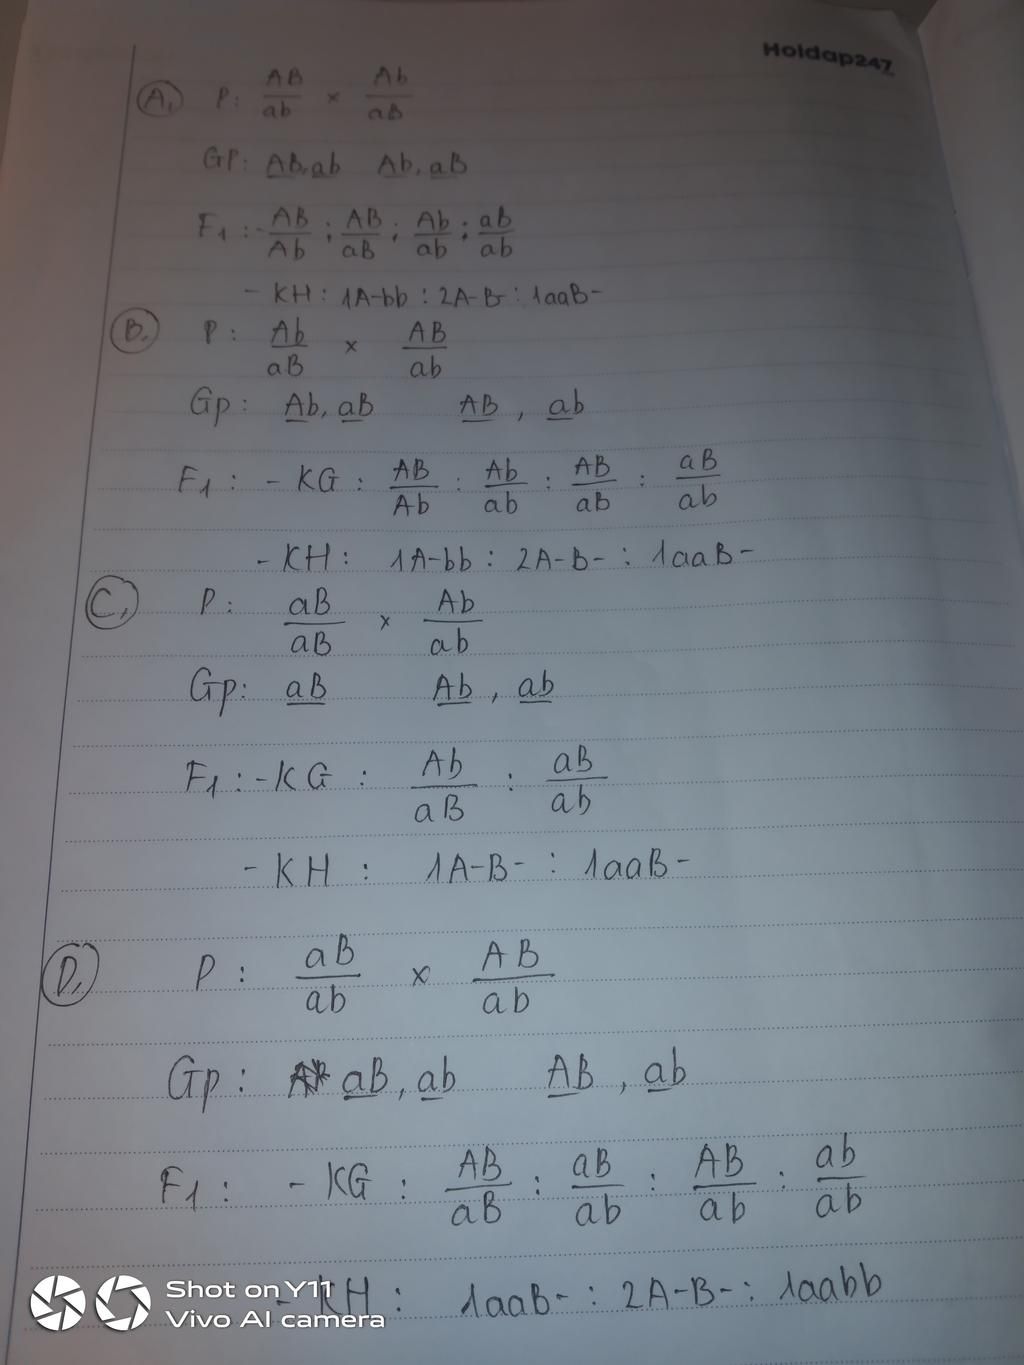 Holdap247
A, P: AB/ab × Ab/aB
GP: AB, ab Ab, aB
F1: - AB/Ab ; AB/aB ; Ab/ab ; aB/ab
- KH: 1A-bb : 2A-B- : 1aaB-
B, P: Ab/aB × AB/ab
Gp: Ab, aB AB, ab
F1: - KG: AB/Ab : Ab/ab : AB/aB : aB/ab
- KH: 1A-bb : 2A-B- : 1aaB-
C, P: aB/aB × Ab/ab
Gp: aB Ab, ab
F1: - KG: Ab/aB : aB/ab
- KH: 1A-B- : 1aaB-
D, P: aB/ab × AB/ab
Gp: aB, ab AB, ab
F1: - KG: AB/aB : aB/ab : AB/ab : ab/ab
- KH: 1aaB- : 2A-B- : 1aabb
Shot on Y11
Vivo AI camera